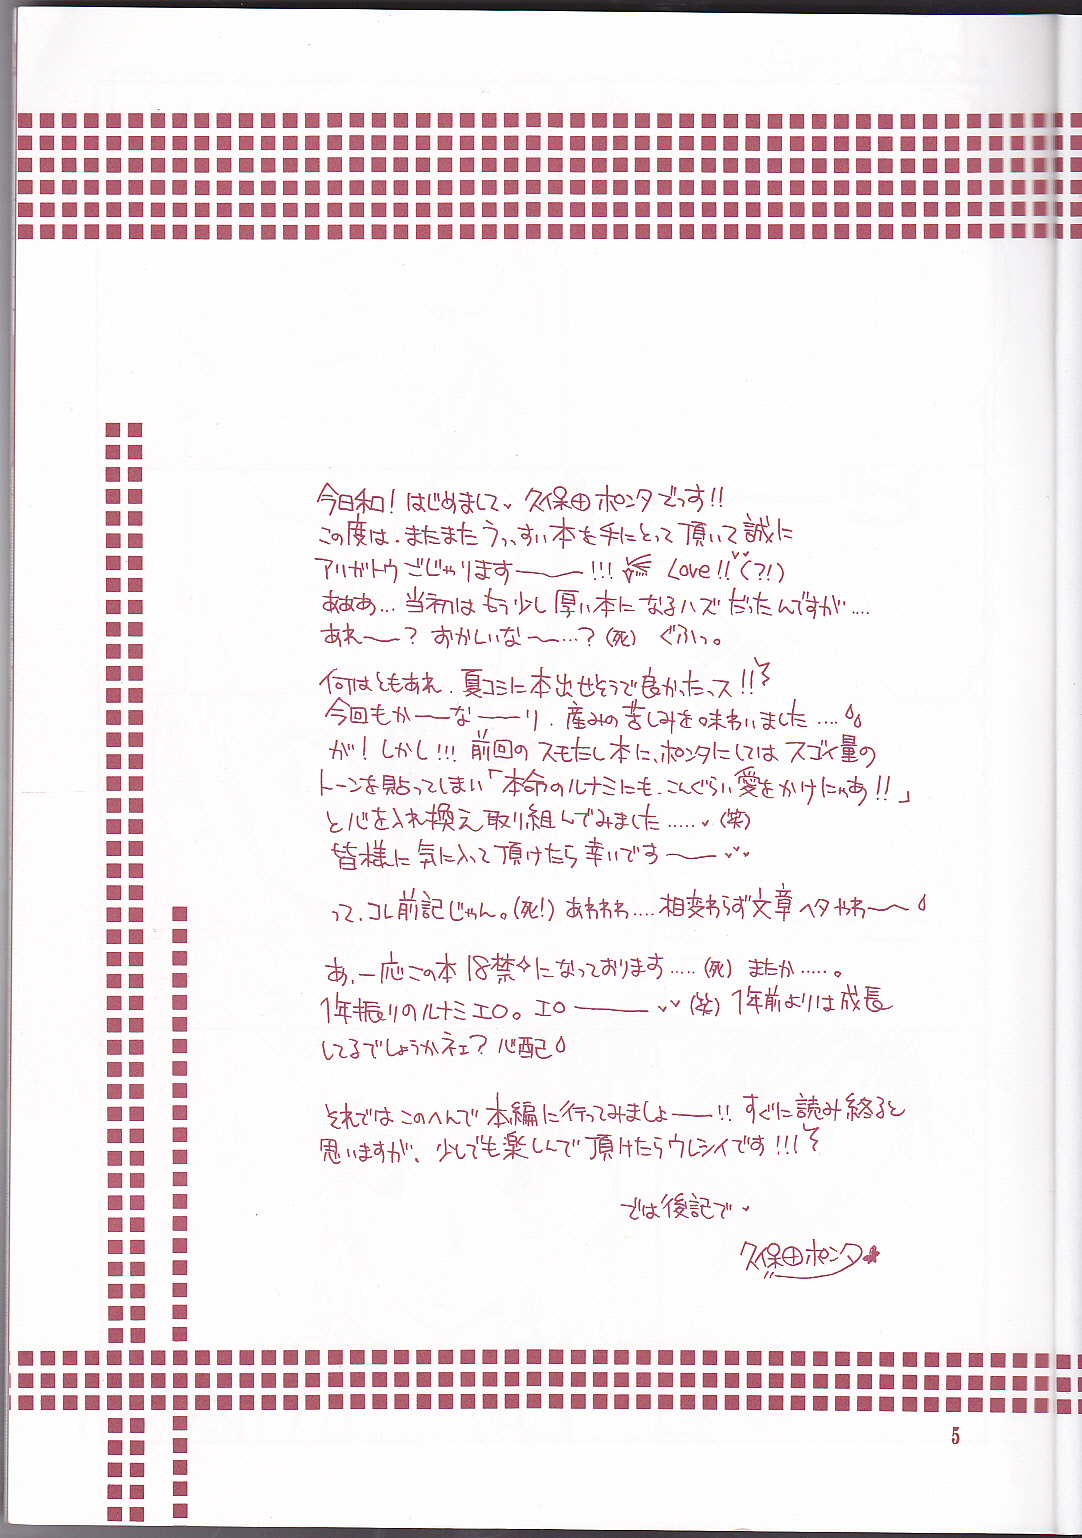 今日和！はじめまして♥ 久保田ポンタでっす!!
この度は、またまたうっすい本を手にとって頂いて誠に
アリガトウごじゃりますー——!!! Love!!♥♥(?!)
あああ…当初はもう少し厚い本になるハズだったんですが….
あれ〜？おかしいな〜…？(死) ぐふっ。
何はともあれ、夏コミに本出せそうで良かったっス!!
今回もか——な——り、産みの苦しみを味わいました….
が！しかし!!! 前回のスモたし本に、ポンタにしてはスゴイ量の
トーンを貼ってしまい「本命のルナミにも、こんぐらい愛をかけにゃあ!!」
と心を入れ換え取り組んでみました…..♥(笑)
皆様に気に入って頂けたら幸いです〜—♥♥
って、コレ前記じゃん。(死!) あわわわ….相変わらず文章ヘタやわ〜〜
あ、一応この本18禁✧になっております…..(死) またか…..。
1年振りのルナミエロ。エロ———♥♥(笑) 1年前よりは成長
してるでしょうかネェ？心配
それではこのへんで本編に行ってみましょ——!! すぐに読み終ると
思いますが、少しでも楽しんで頂けたらウレシイです!!!
では後記で♥
久保田ポンタ
5